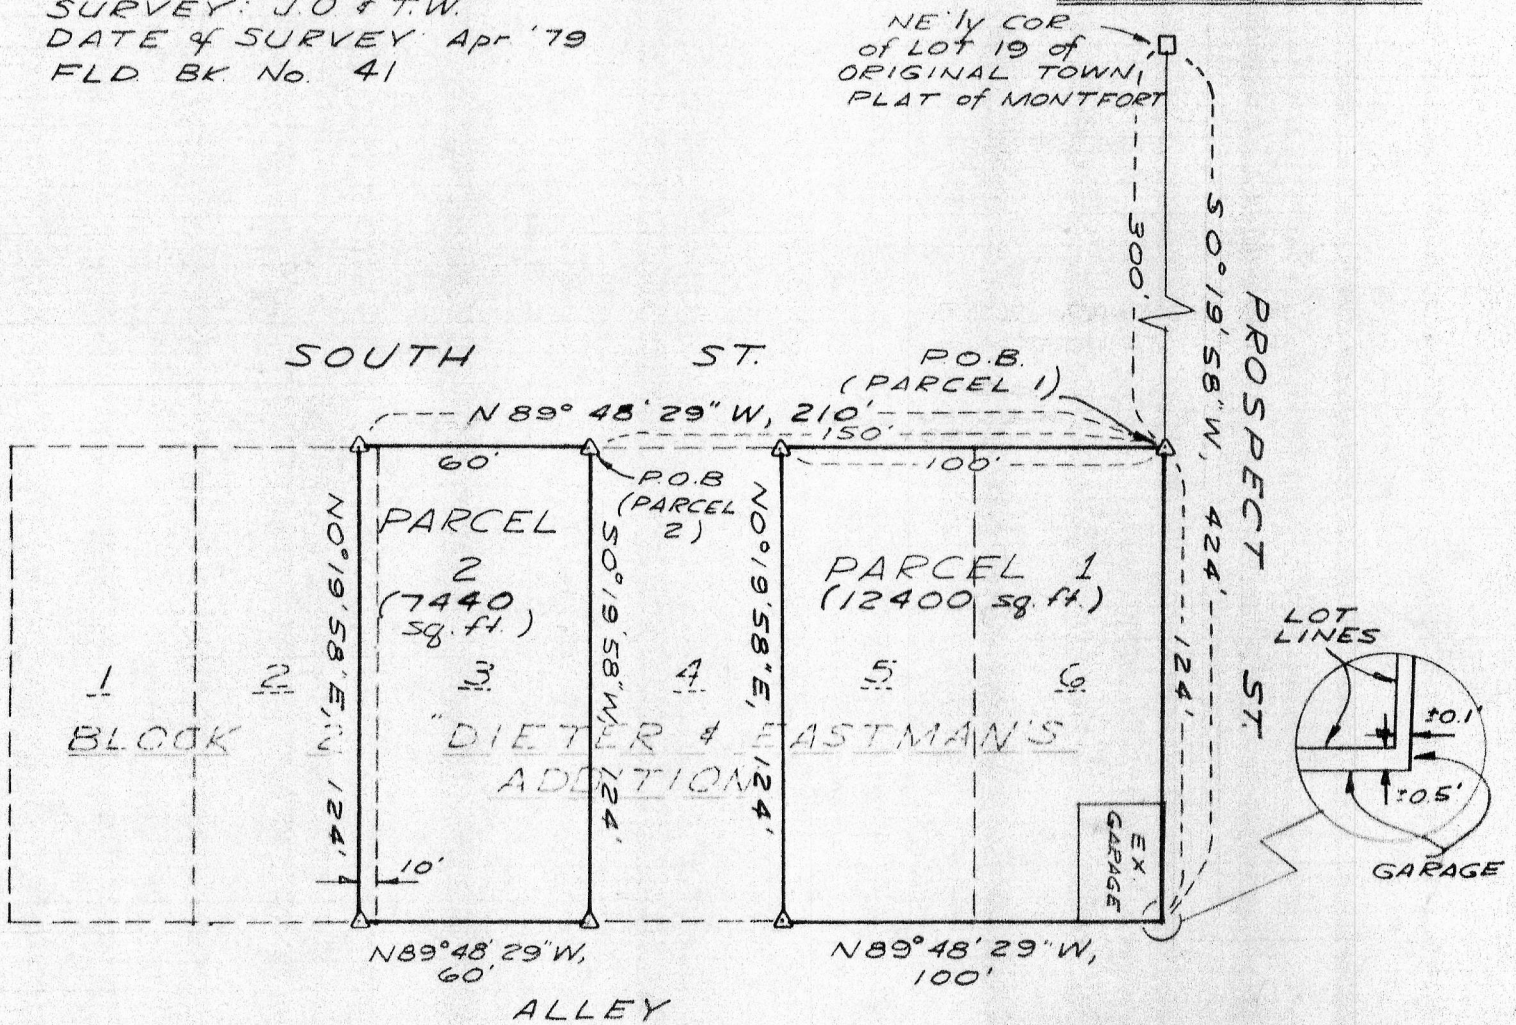 SURVEY: J.O. & T.W.
DATE of SURVEY Apr '79
FLD. BK. No. 41
NE'ly COR
of LOT 19 of
ORIGINAL TOWN
PLAT of MONTFORT
300'
S0°19'58"W, 424'
PROSPECT ST.
SOUTH ST.
P.O.B.
(PARCEL 1)
N89°48'29"W, 210'
150'
60'
100'
P.O.B
(PARCEL
2)
PARCEL
2
(7440
sq.ft.)
PARCEL 1
(12400 sq.ft.)
N0°19'58"E, 124'
S0°19'58"W, 124'
N0°19'58"E, 124'
124'
1
2
3
4
5
6
BLOCK 2 "DIETER & EASTMAN'S
ADDITION
LOT
LINES
±0.1'
±0.5'
GARAGE
EX.
GARAGE
10'
N89°48'29"W,
60'
N89°48'29"W,
100'
ALLEY